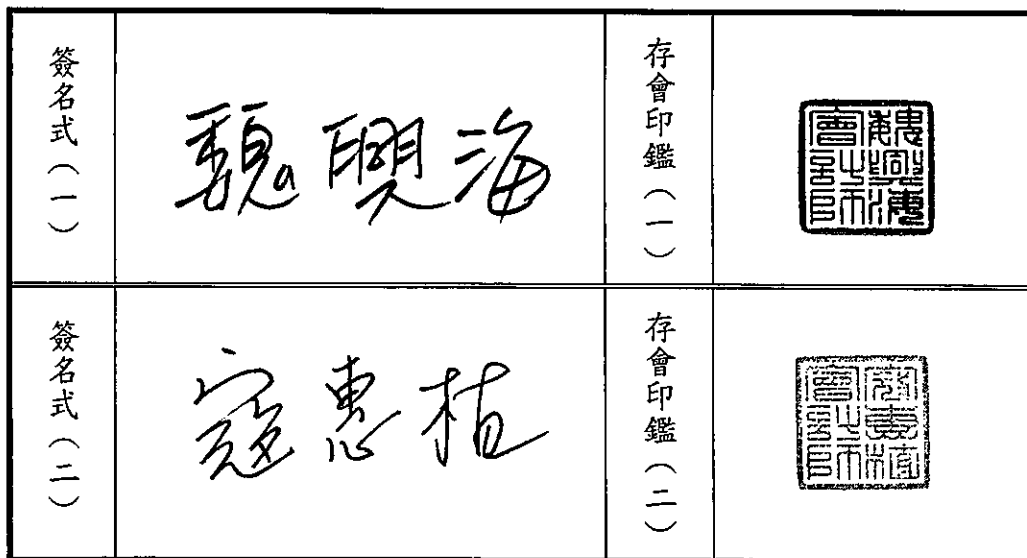 簽名式(一)
魏興海
存會印鑑(一)
魏興海會計師
簽名式(二)
寇惠植
存會印鑑(二)
寇惠植會計師